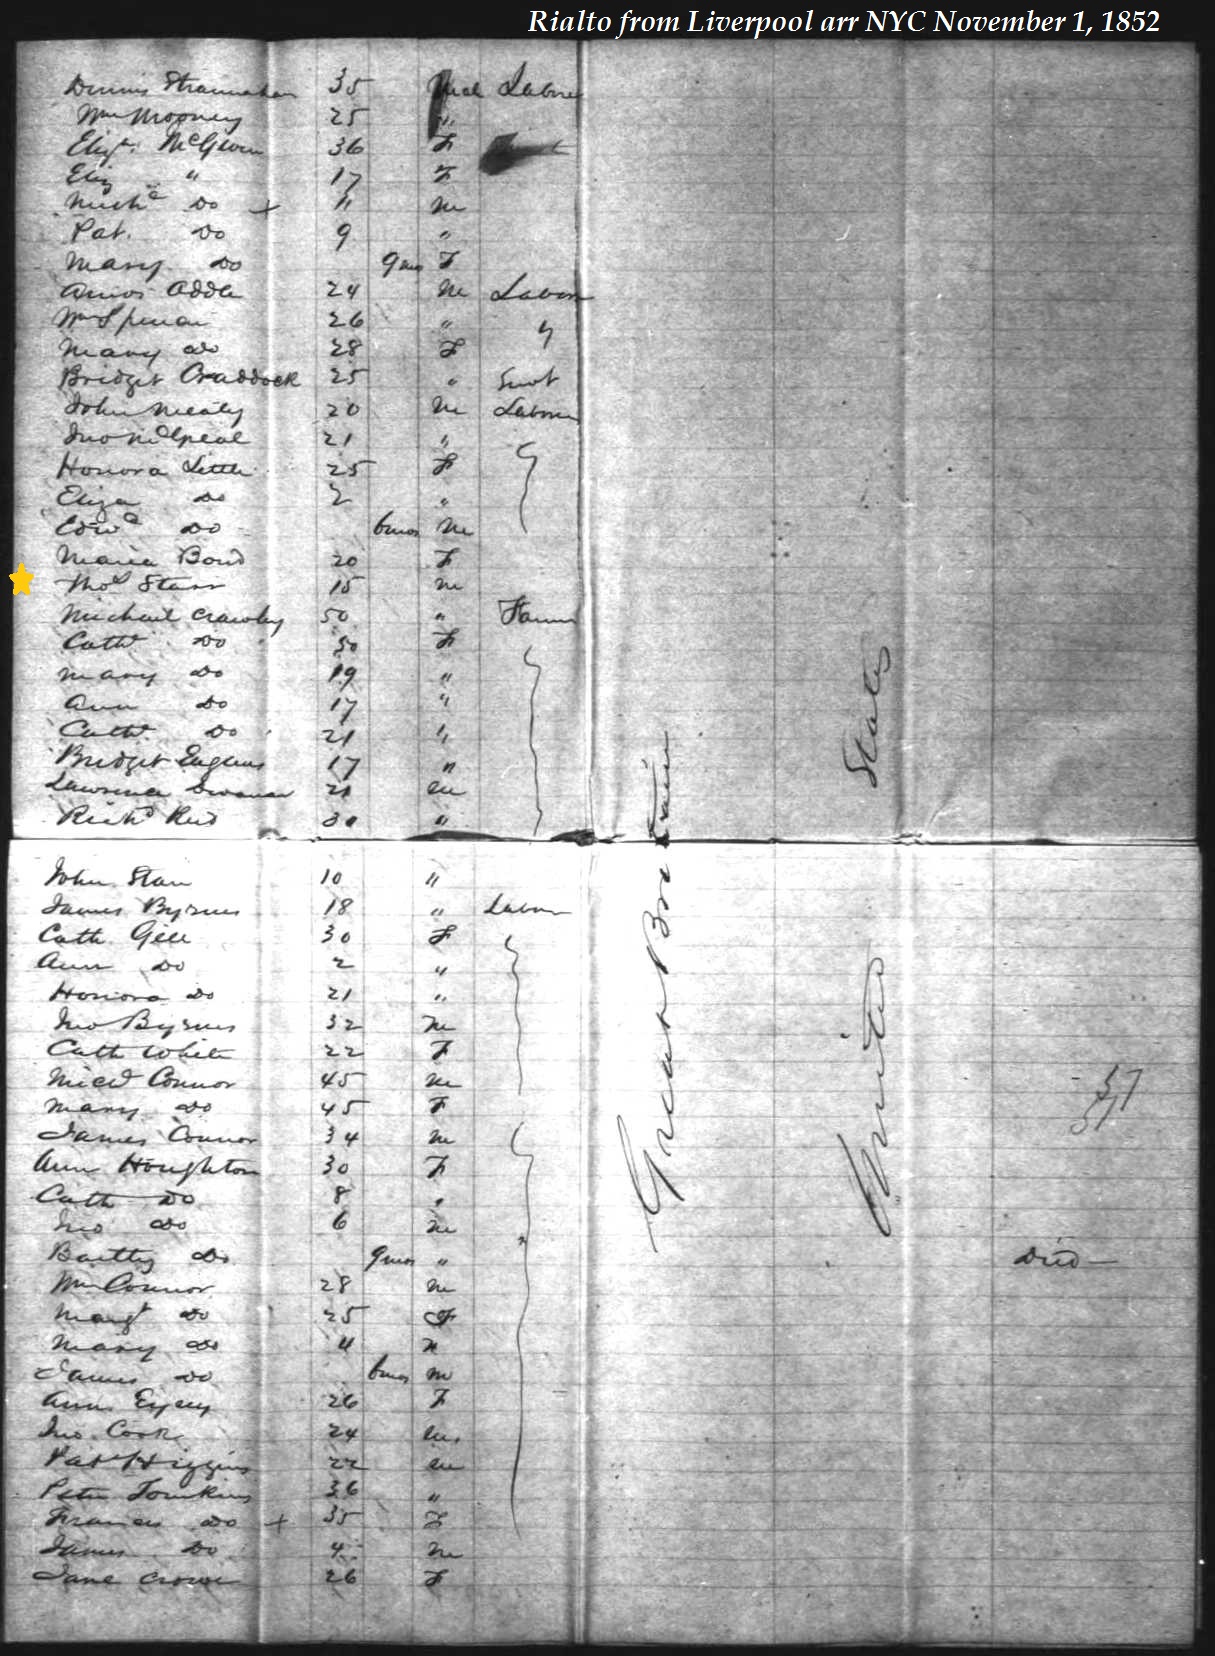 Rialto from Liverpool arr NYC November 1, 1852
Dennis 35 Labore
Wm Mooney 25 "
Elizt. McGwin 36 F
Eliz " 17 F
Michl Do + 11 M
Pat. Do 9 "
Mary Do 9 mos F
Amos Addle 24 M Labore
Wm Spencer 26 " "
Mary Do 28 F
Bridget Craddock 25 " Servt
John Mealy 20 M Laborer
Jno 21 "
Honora Little 25 F
Eliza Do 2 "
Edwd Do 6 mos M
Maria Bond 20 F
Thos Starr 15 M
Michael Crawley 50 " Farmer
Cathe Do 50 F
Mary Do 19 "
Ann Do 17 "
Cathe Do 21 "
Bridget 17 "
Lawrence 21 M
Richd Reid 30 "
John Starr 10 "
James Byrnes 18 " Labor
Cath Gill 30 F
Ann Do 2 "
Honora Do 21 "
Jno Byrnes 32 M
Cath White 22 F
Micl Connor 45 M
Mary Do 45 F
James Connor 34 M
Ann Houghton 30 F
Cath Do 8 "
Jno Do 6 M
Bartley Do 9 mos " Died
Wm Connor 28 M
Margt Do 25 F
Mary Do 4 "
James Do 6 mos M
Ann 26 F
Jno Cook 24 M
Pat Higgins 22 M
Peter Tomkins 36 "
Frances Do + 35 F
James Do 4 M
Jane Crowe 26 F
Great Britain
United States
57